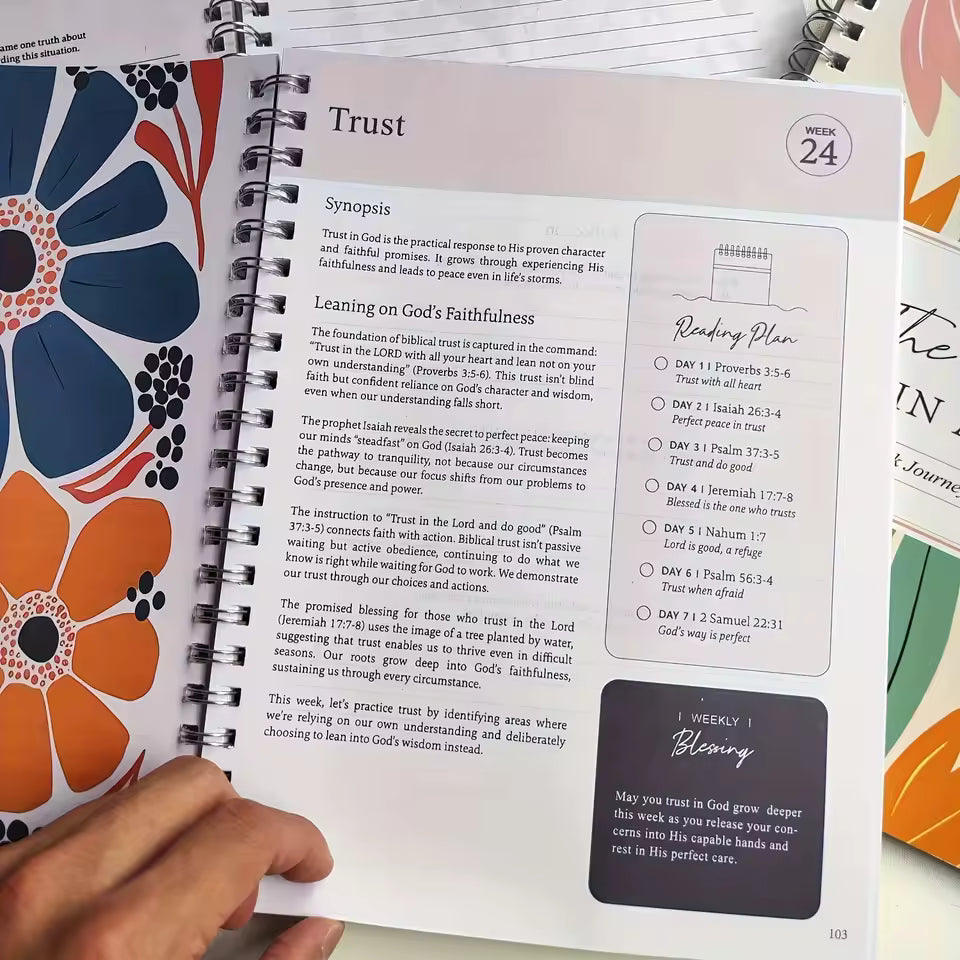 ame one truth about
ding this situation.
Trust
WEEK
24
Synopsis
Trust in God is the practical response to His proven character
and faithful promises. It grows through experiencing His
faithfulness and leads to peace even in life's storms.
Leaning on God's Faithfulness
The foundation of biblical trust is captured in the command:
“Trust in the LORD with all your heart and lean not on your
own understanding” (Proverbs 3:5-6). This trust isn't blind
faith but confident reliance on God's character and wisdom,
even when our understanding falls short.
The prophet Isaiah reveals the secret to perfect peace: keeping
our minds “steadfast” on God (Isaiah 26:3-4). Trust becomes
the pathway to tranquility, not because our circumstances
change, but because our focus shifts from our problems to
God's presence and power.
The instruction to “Trust in the Lord and do good” (Psalm
37:3-5) connects faith with action. Biblical trust isn't passive
waiting but active obedience, continuing to do what we
know is right while waiting for God to work. We demonstrate
our trust through our choices and actions.
The promised blessing for those who trust in the Lord
(Jeremiah 17:7-8) uses the image of a tree planted by water,
suggesting that trust enables us to thrive even in difficult
seasons. Our roots grow deep into God's faithfulness,
sustaining us through every circumstance.
This week, let's practice trust by identifying areas where
we're relying on our own understanding and deliberately
choosing to lean into God's wisdom instead.
Reading Plan
DAY 1 | Proverbs 3:5-6
Trust with all heart
DAY 2 | Isaiah 26:3-4
Perfect peace in trust
DAY 3 | Psalm 37:3-5
Trust and do good
DAY 4 | Jeremiah 17:7-8
Blessed is the one who trusts
DAY 5 | Nahum 1:7
Lord is good, a refuge
DAY 6 | Psalm 56:3-4
Trust when afraid
DAY 7 | 2 Samuel 22:31
God's way is perfect
| WEEKLY |
Blessing
May you trust in God grow deeper
this week as you release your con-
cerns into His capable hands and
rest in His perfect care.
103
The
IN
k Journey